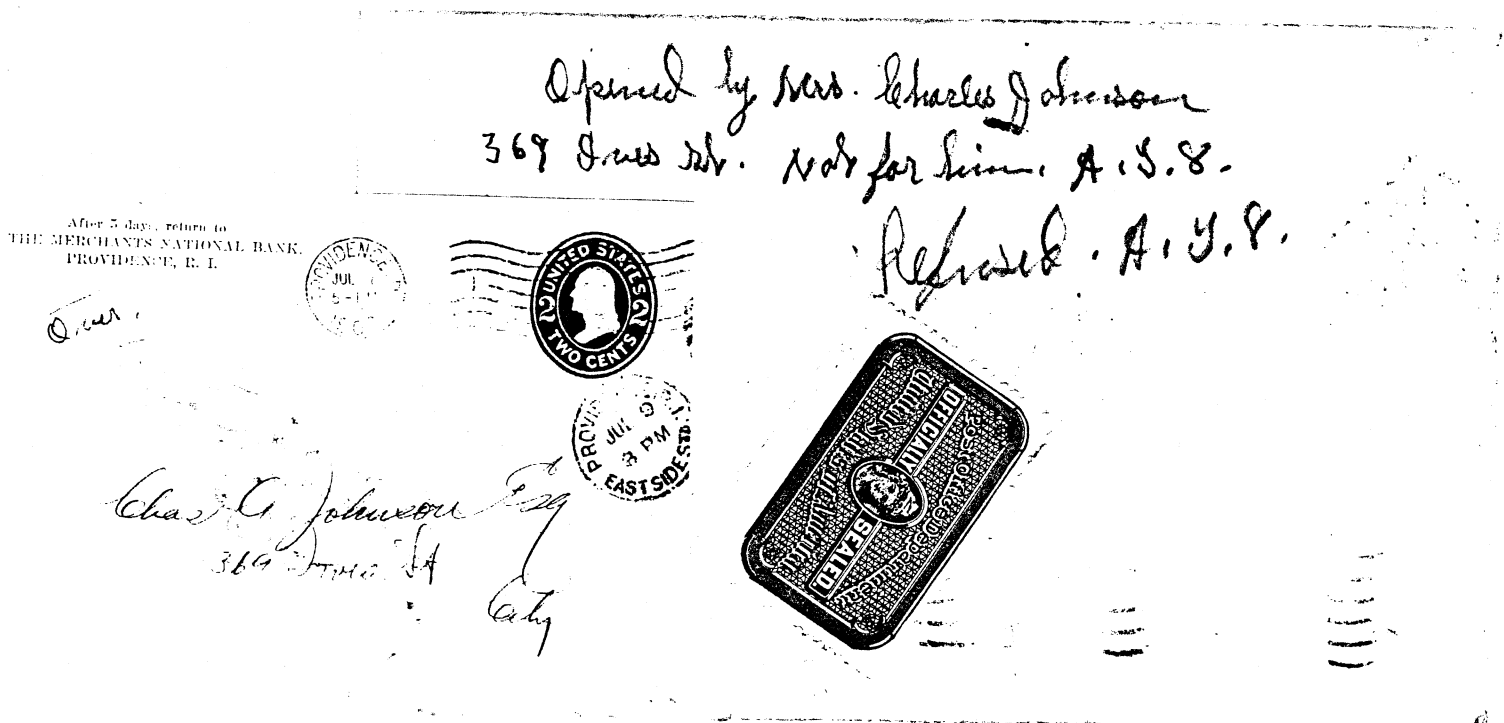 Opened by Mrs. Charles Johnson
369 Ives St. Not for him. A.Y.8.
Refused. A.Y.8.
After 5 days, return to
THE MERCHANTS NATIONAL BANK,
PROVIDENCE, R. I.
PROVIDENCE
JUL
UNITED STATES
2 2
TWO CENTS
Over.
JUL 9
8 PM
EAST SIDE STA.
Chas A Johnson Esq
369 Ives St
City
Post Office Department
OFFICIALLY SEALED.
United States of America